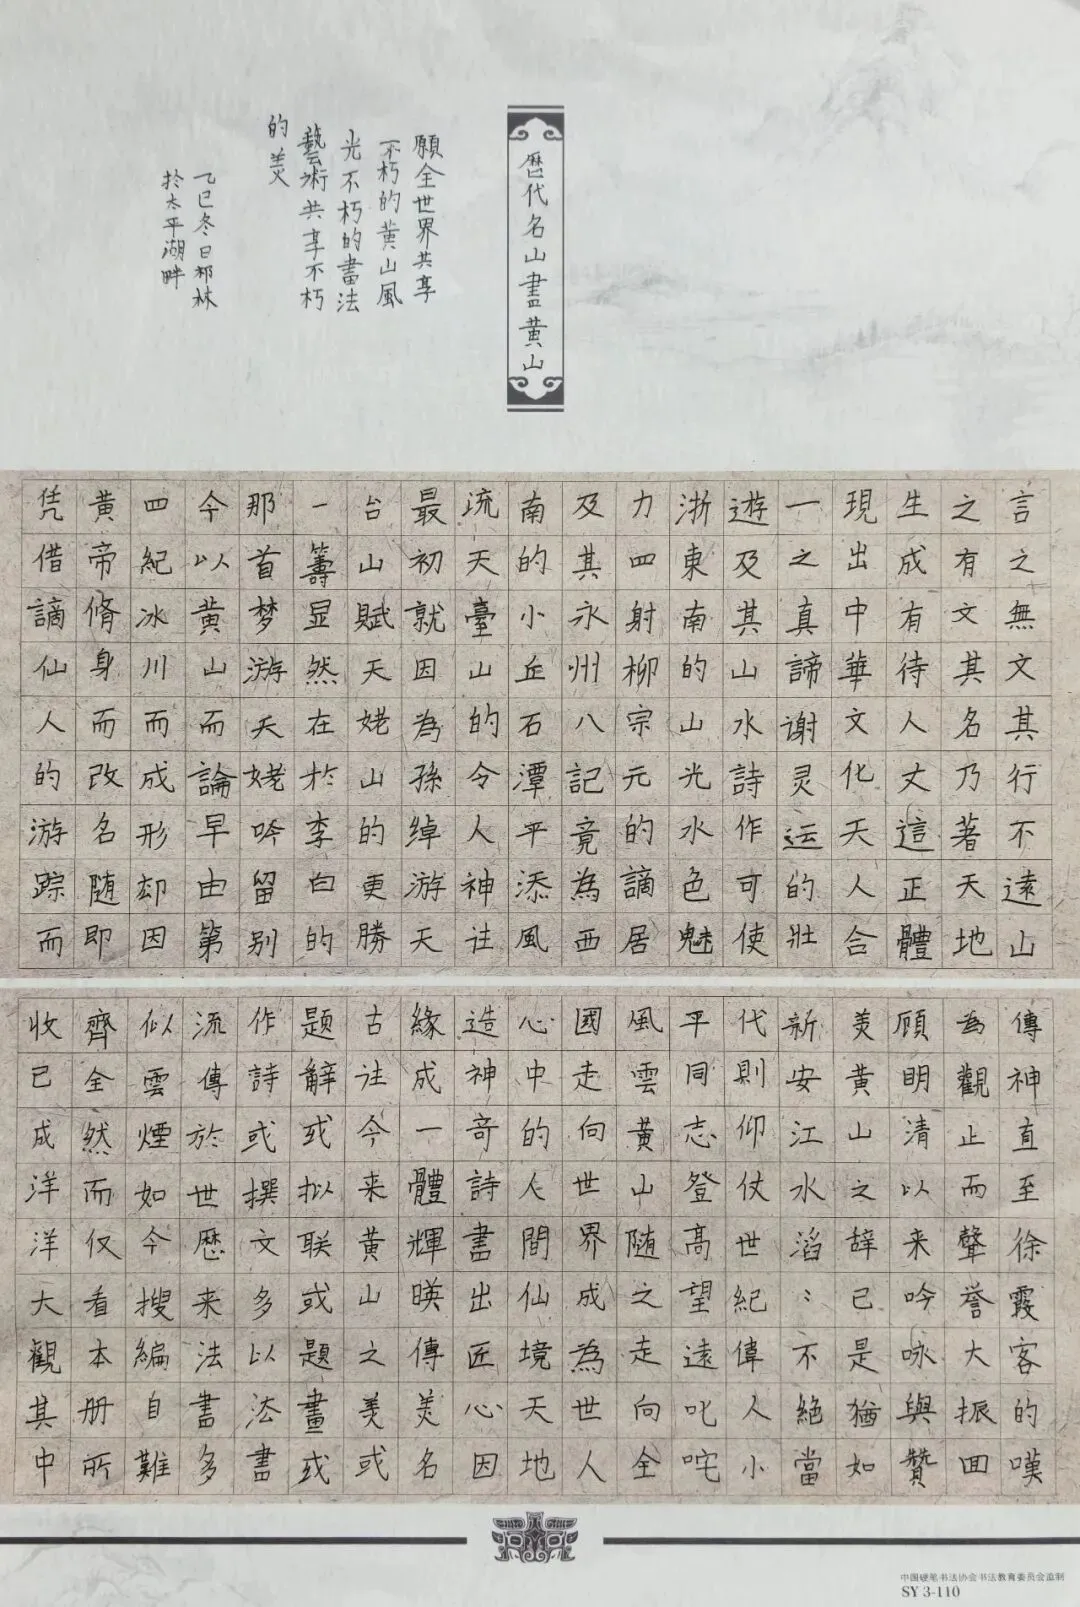 歷代名山畫黃山
願全世界共享
不朽的黃山風
光不朽的書法
藝術共享不朽
的美
乙巳冬日祁林
於太平湖畔
言之無文其行不遠山
之有文其名乃著天地
生成有待人文這正體
現出中華文化天人合
一之真諦谢灵运的壯
遊及其山水詩作可使
浙東南的山光水色魅
力四射柳宗元的謫居
及其永州八記竟為西
南的小丘石潭平添風
流天臺山的令人神往
最初就因為孫绰游天
台山賦天姥山的更勝
一籌显然在於李白的
那首梦游天姥吟留别
今以黃山而論早由第
四紀冰川而成形却因
黃帝脩身而改名随即
凭借謫仙人的游踪而
傳神直至徐霞客的嘆
為觀止而聲誉大振回
顾明清以来吟咏與贊
美黃山之辞已是猶如
新安江水滔:不絕當
代則仰仗世紀偉人小
平同志登高望遠叱咤
風雲黃山随之走向全
國走向世界成為世人
心中的人間仙境天地
造神奇詩書出匠心因
緣成一體輝暎傳美名
古往今来黃山之美或
題辭或拟联或題畫或
作詩或撰文多以法書
流傳於世歷来法書多
似雲煙如今搜編自難
齊全然而仅看本册所
收已成洋洋大觀其中
中国硬笔书法协会书法教育委员会监制
SY 3-110